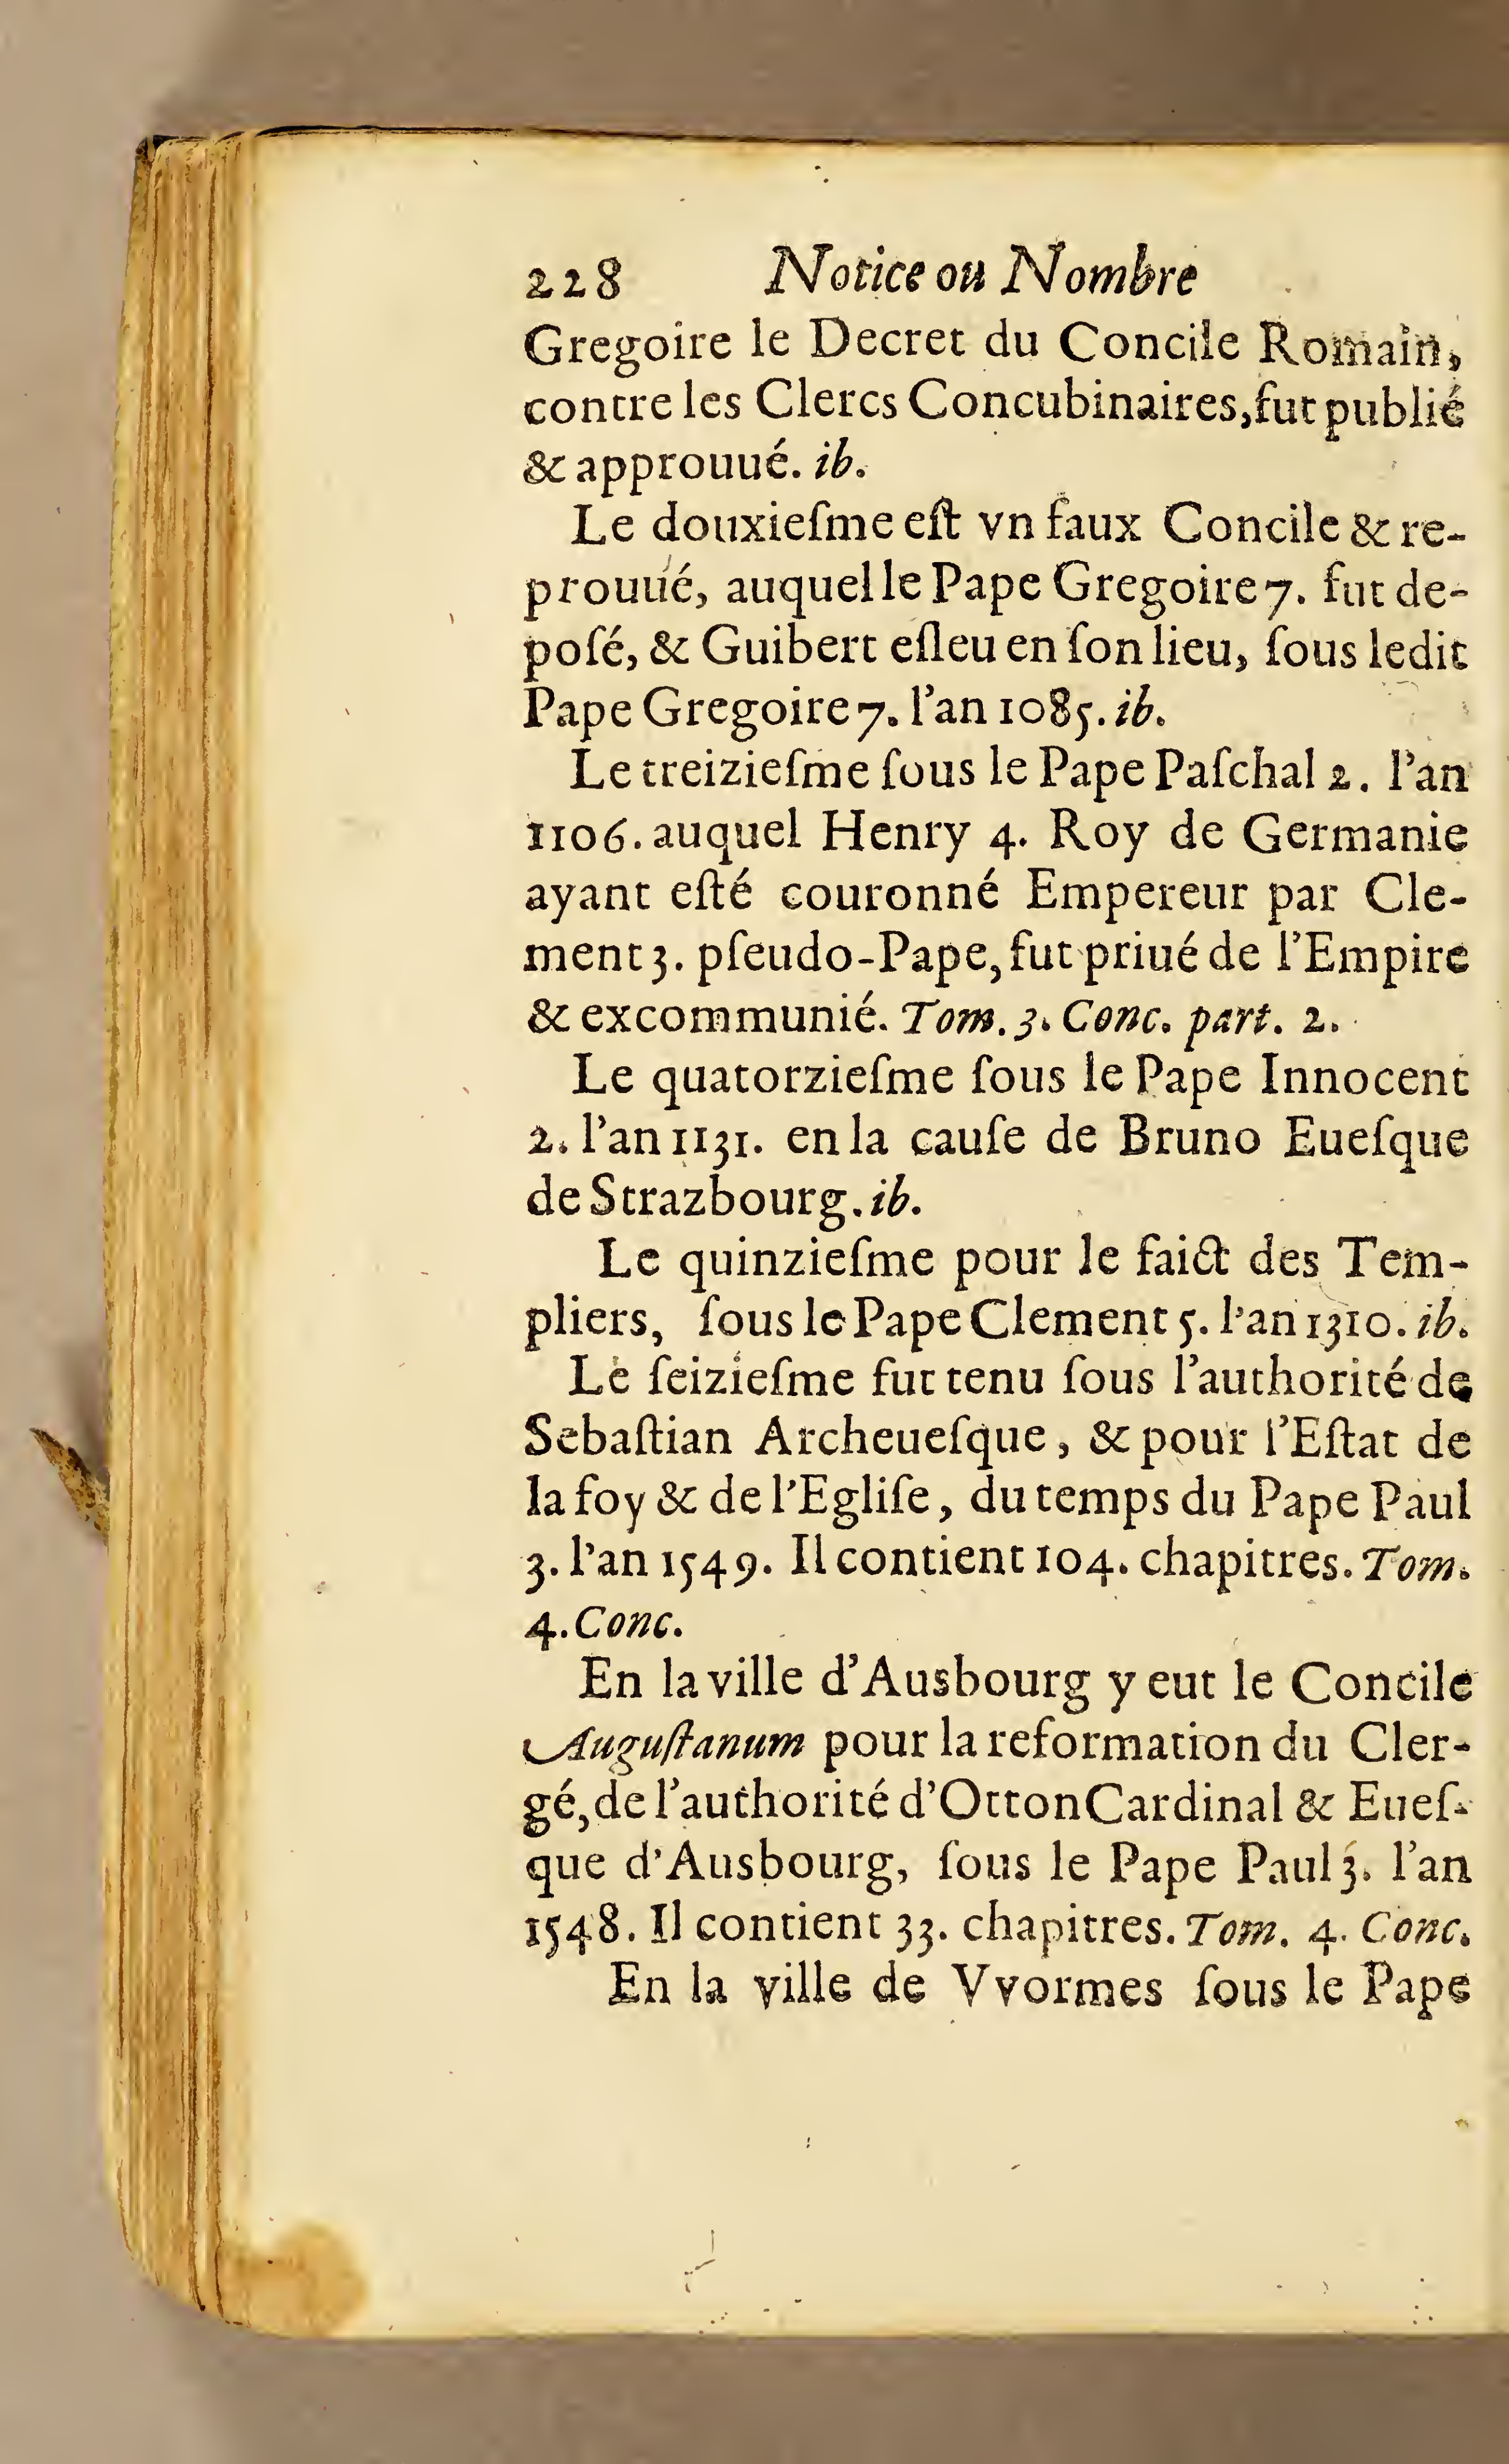 228 Notice ou Nombre
Gregoire le Decret du Concile Romain,
contre les Clercs Concubinaires, fut publié
& approuué. ib.
Le douxieſme eſt vn faux Concile & re-
prouué, auquel le Pape Gregoire 7. fut de-
poſé, & Guibert eſleu en ſon lieu, ſous ledit
Pape Gregoire 7. l'an 1085. ib.
Le treizieſme ſous le Pape Paſchal 2. l'an
1106. auquel Henry 4. Roy de Germanie
ayant eſté couronné Empereur par Cle-
ment 3. pſeudo-Pape, fut priué de l'Empire
& excommunié. Tom. 3. Conc. part. 2.
Le quatorzieſme ſous le Pape Innocent
2. l'an 1131. en la cauſe de Bruno Eueſque
de Strazbourg. ib.
Le quinzieſme pour le faict des Tem-
pliers, ſous le Pape Clement 5. l'an 1310. ib.
Le ſeizieſme fut tenu ſous l'authorité de
Sebaſtian Archeueſque, & pour l'Eſtat de
la foy & de l'Egliſe, du temps du Pape Paul
3. l'an 1549. Il contient 104. chapitres. Tom.
4. Conc.
En la ville d'Ausbourg y eut le Concile
Auguſtanum pour la reformation du Cler-
gé, de l'authorité d'Otton Cardinal & Eueſ-
que d'Ausbourg, ſous le Pape Paul 3. l'an
1548. Il contient 33. chapitres. Tom. 4. Conc.
En la ville de Vvormes ſous le Pape